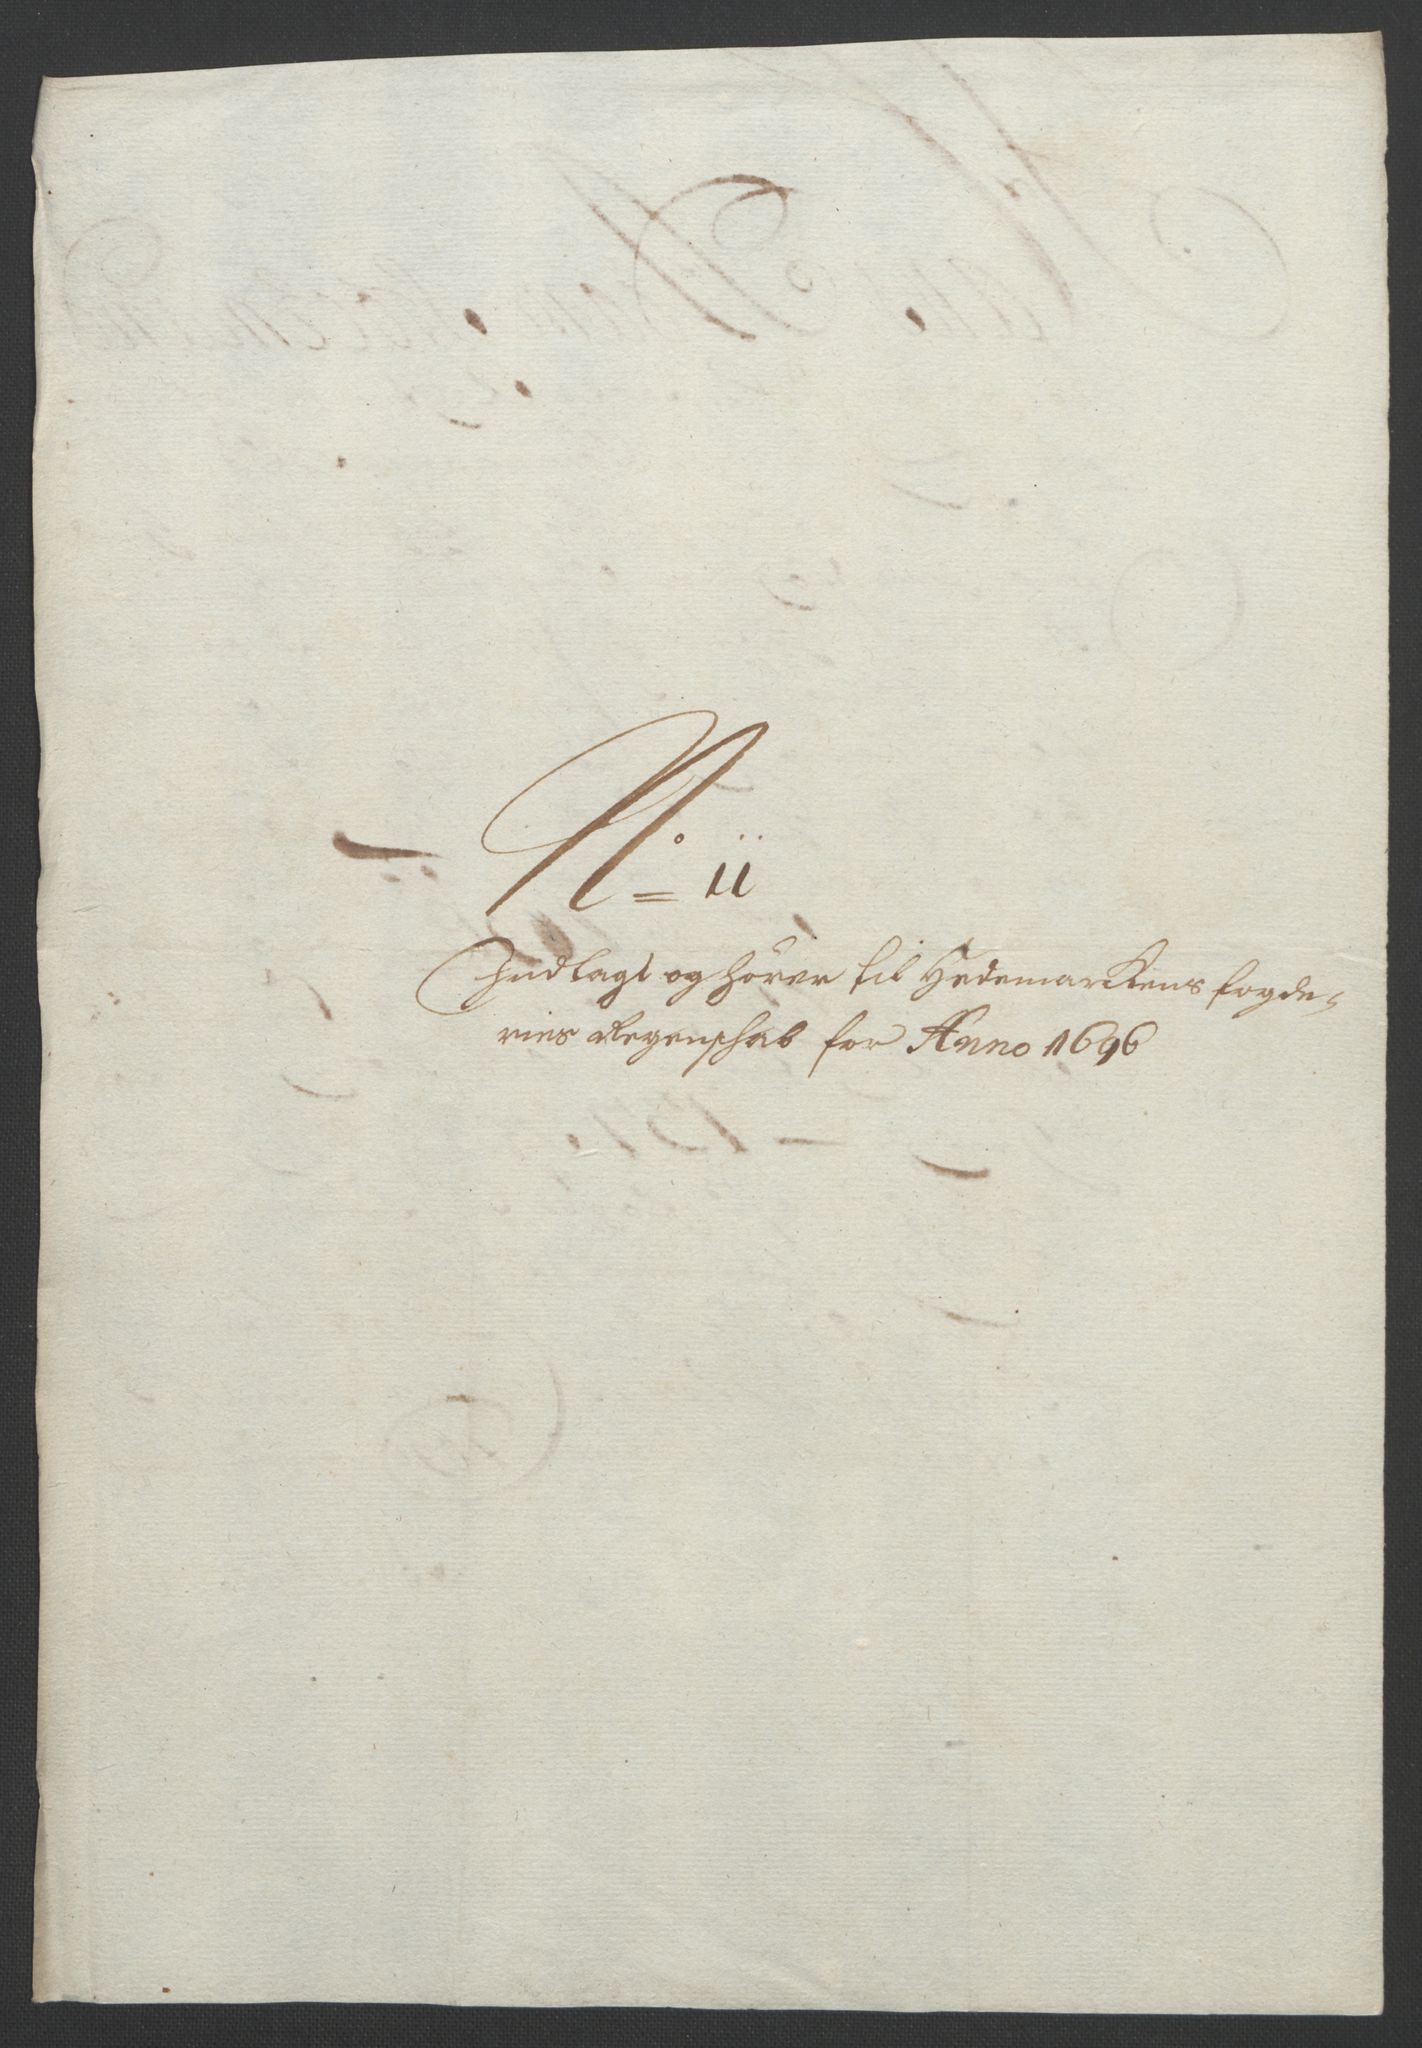 No = ii
Indlagt og hörer til Hedemarkens fogde-
ries Regenschab for Anno 1696